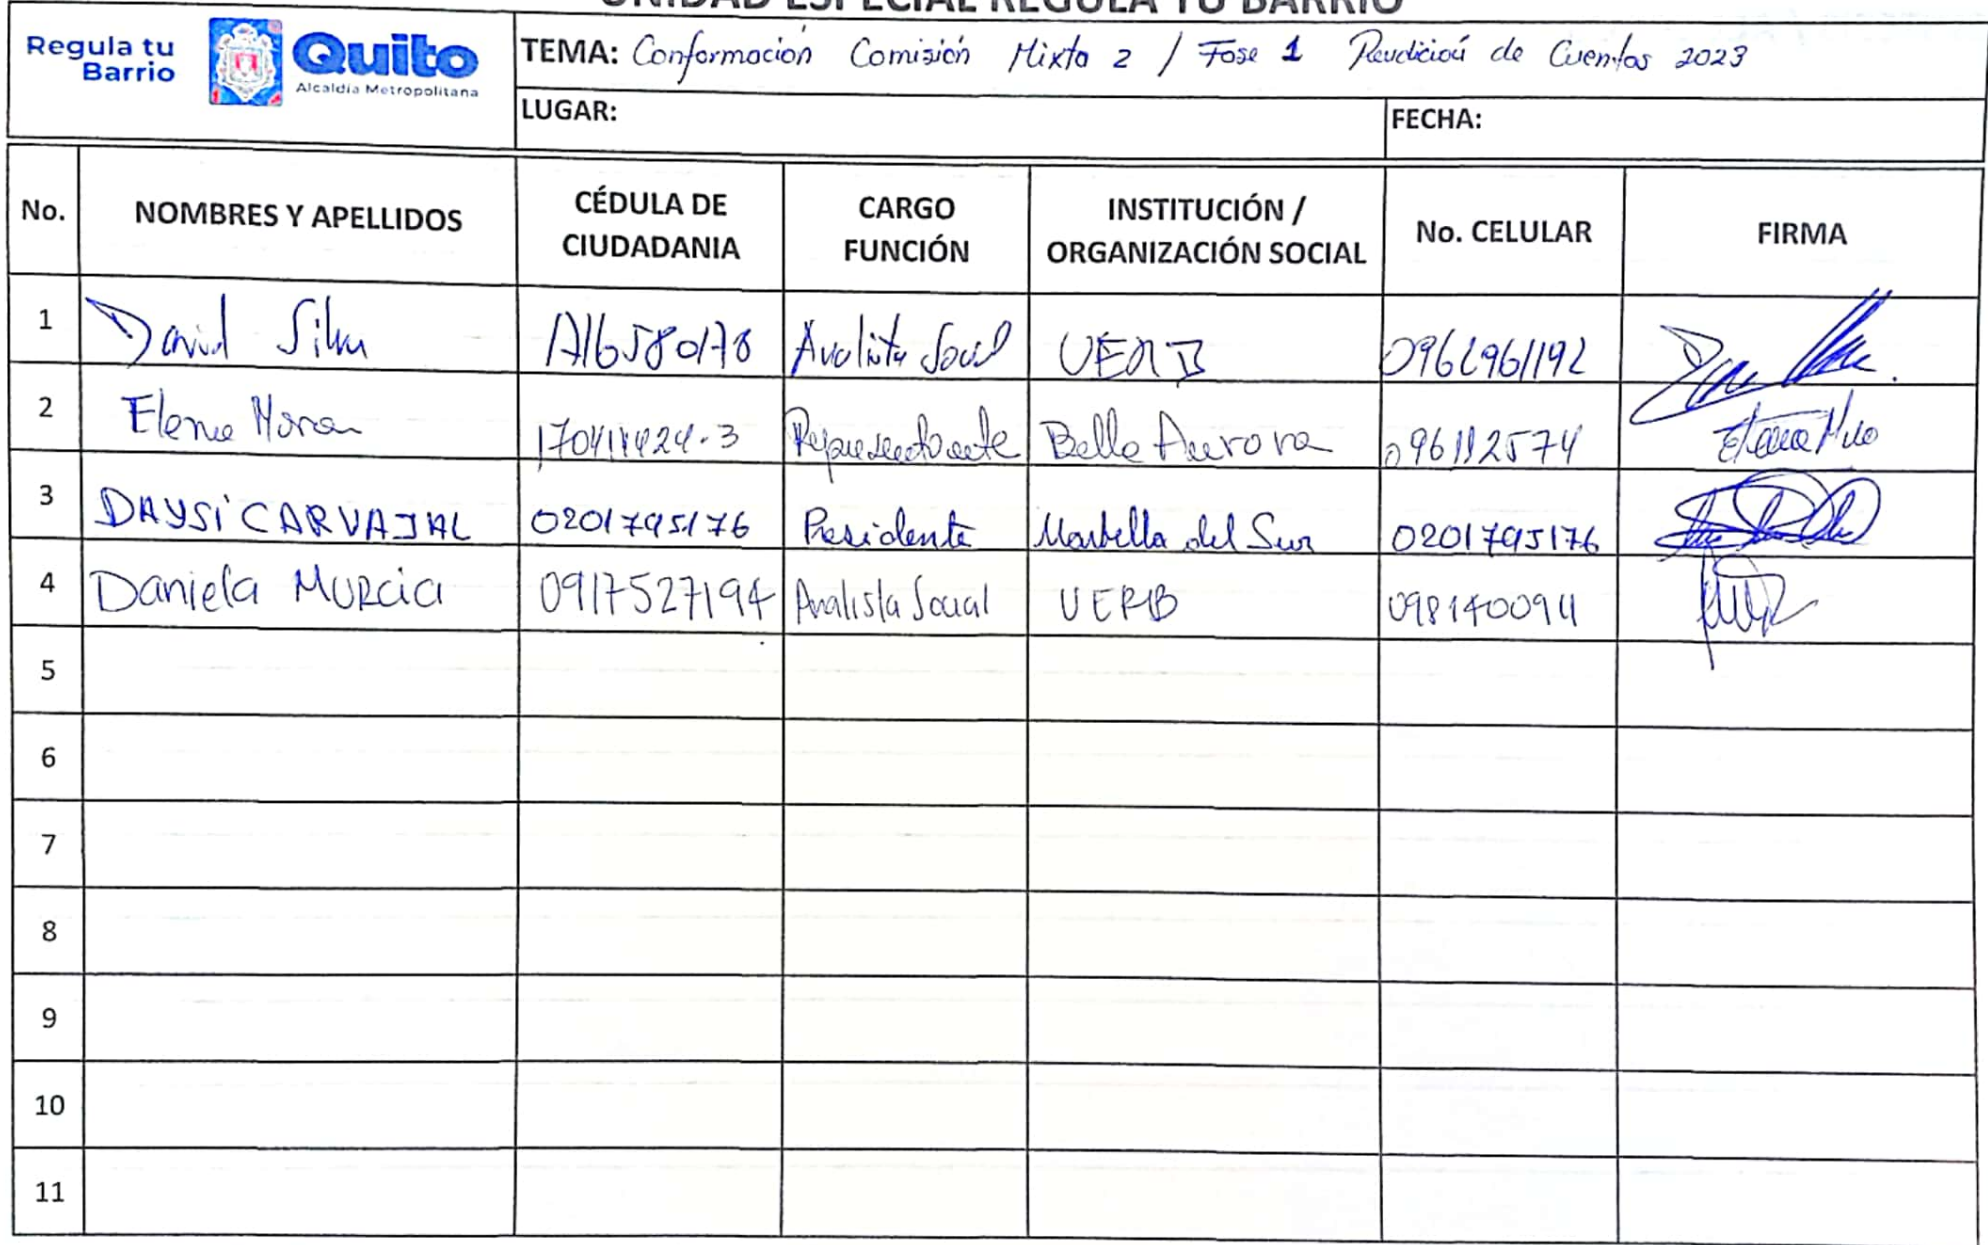 UNIDAD ESPECIAL REGULA TU BARRIO
Regula tu Barrio
Quito
Alcaldía Metropolitana
TEMA: Conformación Comisión Mixta 2 / Fase 1 Rendición de Cuentas 2023
LUGAR: FECHA:
No. NOMBRES Y APELLIDOS CÉDULA DE CIUDADANIA CARGO FUNCIÓN INSTITUCIÓN / ORGANIZACIÓN SOCIAL No. CELULAR FIRMA
1 David Silva Analista Social UERB 0962961192
2 Elena Representante Bella Aurora 096112574
3 DAYSI CARVAJAL 0201795176 Presidente Marbella del Sur 0201795176
4 Daniela Murcia 0917527194 Analista Social UERB 0981400911
5
6
7
8
9
10
11